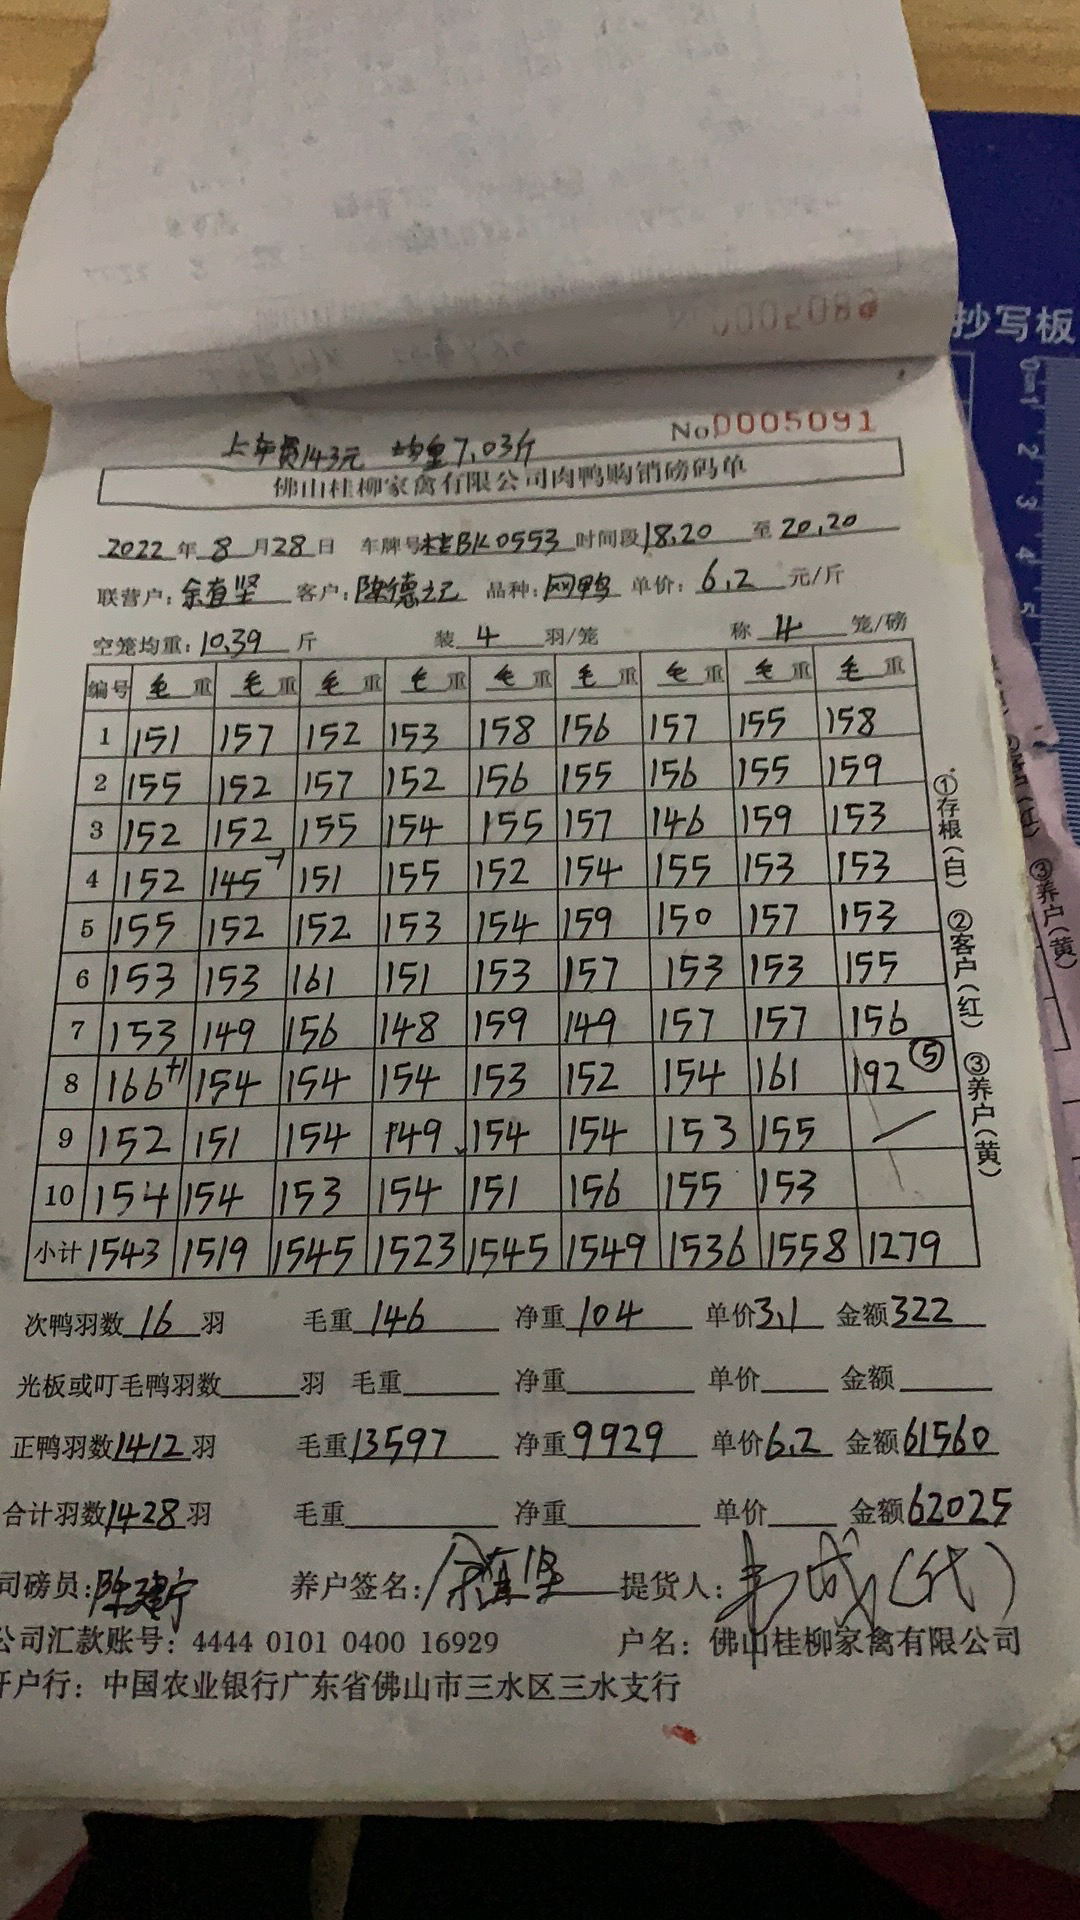 抄写板
No 0005091
上车费143元 均重7.03斤
佛山桂柳家禽有限公司肉鸭购销磅码单
2022年8月28日 车牌号桂BK0553 时间段18.20至20.20
联营户:余直坚 客户:陈德记 品种:网鸭 单价:6.2元/斤
空笼均重:10.39斤 装4羽/笼 称4笼/磅
编号 毛重 毛重 毛重 毛重 毛重 毛重 毛重 毛重 毛重
1 151 157 152 153 158 156 157 155 158
2 155 152 157 152 156 155 156 155 159
3 152 152 155 154 155 157 146 159 153
4 152 145-1 151 155 152 154 155 153 153
5 155 152 152 153 154 159 150 157 153
6 153 153 161 151 153 157 153 153 155
7 153 149 156 148 159 149 157 157 156
8 166+1 154 154 154 153 152 154 161 192⑤
9 152 151 154 149 154 154 153 155
10 154 154 153 154 151 156 155 153
小计 1543 1519 1545 1523 1545 1549 1536 1558 1279
①存根(白) ②客户(红) ③养户(黄)
③养户(黄)
次鸭羽数16羽 毛重146 净重104 单价3.1 金额322
光板或叮毛鸭羽数 羽 毛重 净重 单价 金额
正鸭羽数1412羽 毛重13597 净重9929 单价6.2 金额61560
合计羽数1428羽 毛重 净重 单价 金额62025
司磅员:陈建宁 养户签名:余直坚 提货人:(代)
公司汇款账号:4444 0101 0400 16929 户名:佛山桂柳家禽有限公司
开户行:中国农业银行广东省佛山市三水区三水支行